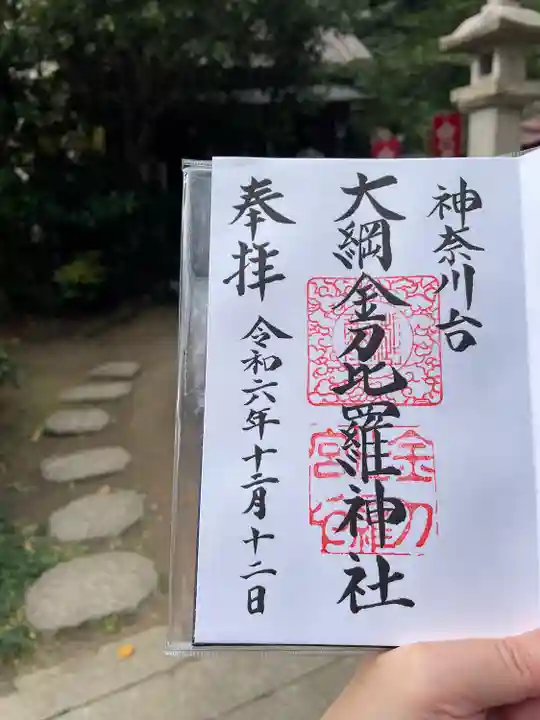 神奈川台
大綱金刀比羅神社
奉拝
令和六年十二月十二日